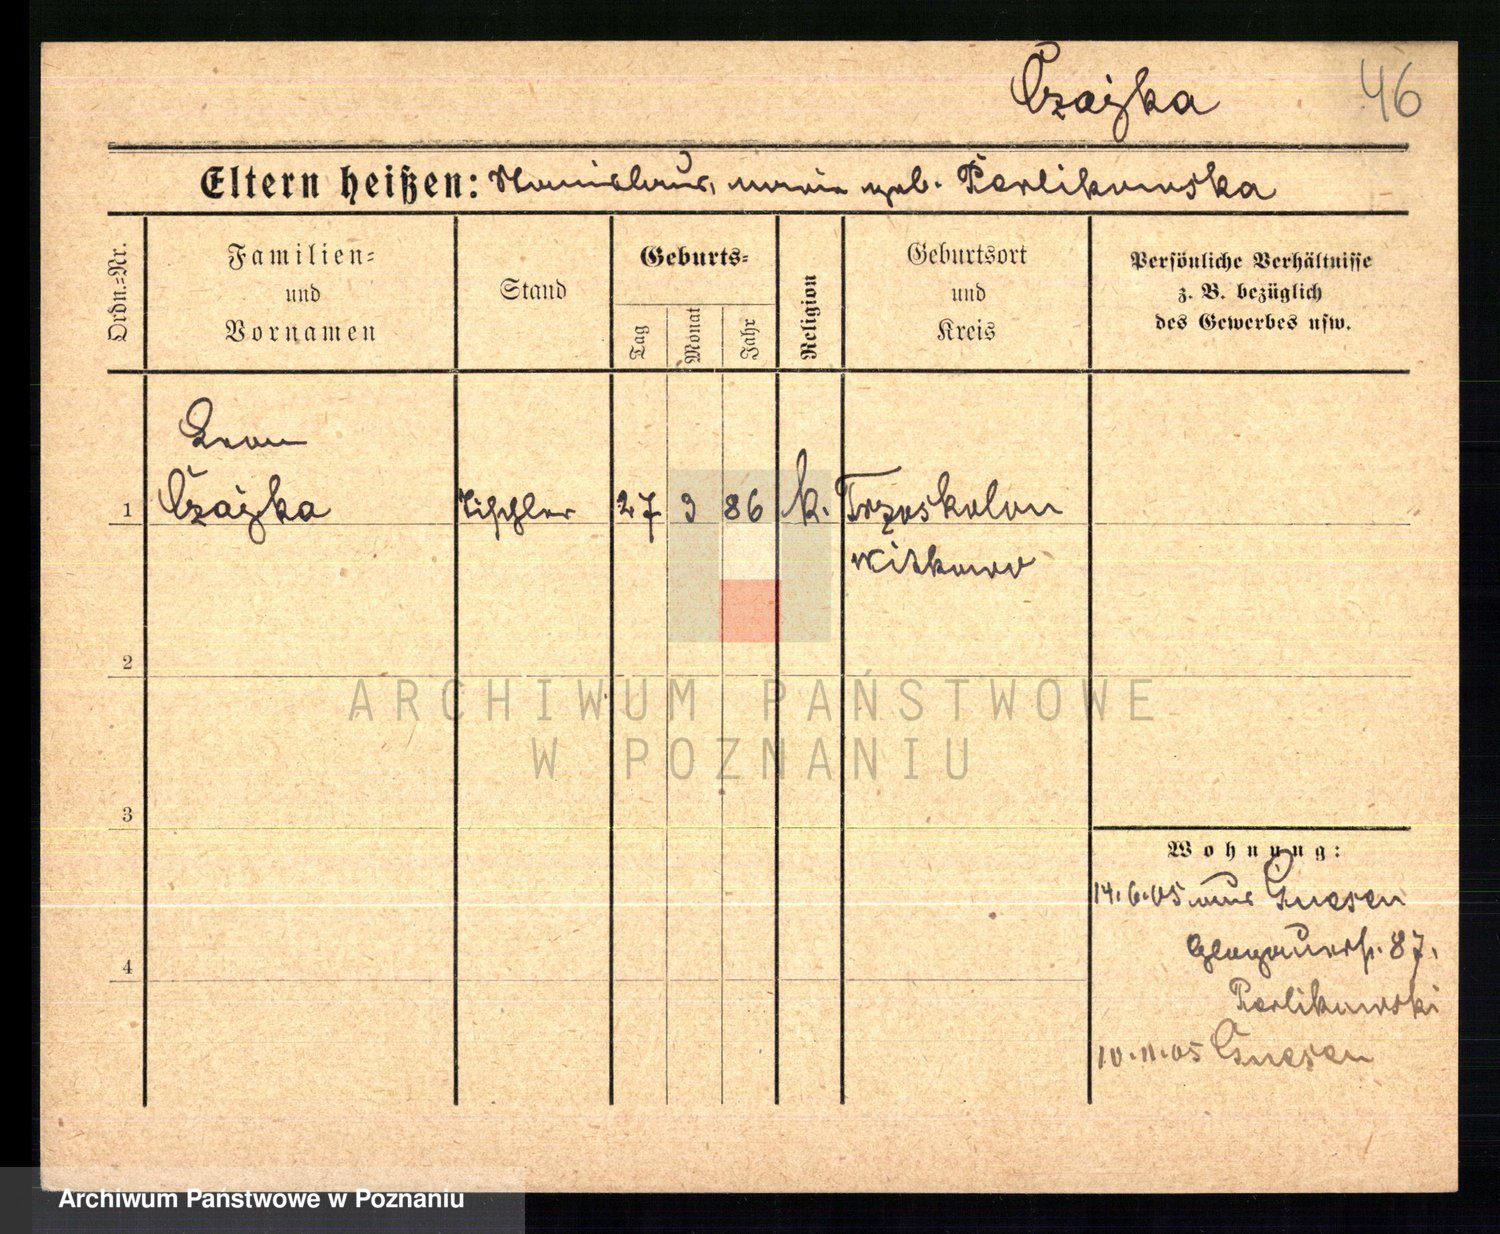 Czajka 46
Eltern heißen: Stanislaus, Marie geb. Perlikowska
Ordn.-Nr.
Familien-
und
Vornamen
Stand
Geburts-
Tag
Monat
Jahr
Religion
Geburtsort
und
Kreis
Persönliche Verhältnisse
z. B. bezüglich
des Gewerbes usw.
Leon
1 Czajka Tischler 27 3 86 k. Trzoskolon
Witkowo
2
3
4
Wohnung:
14.6.05 aus Gnesen
Glogauerstr. 87.
Perlikowski
10.11.05 Gnesen
ARCHIWUM PAŃSTWOWE
W POZNANIU
Archiwum Państwowe w Poznaniu